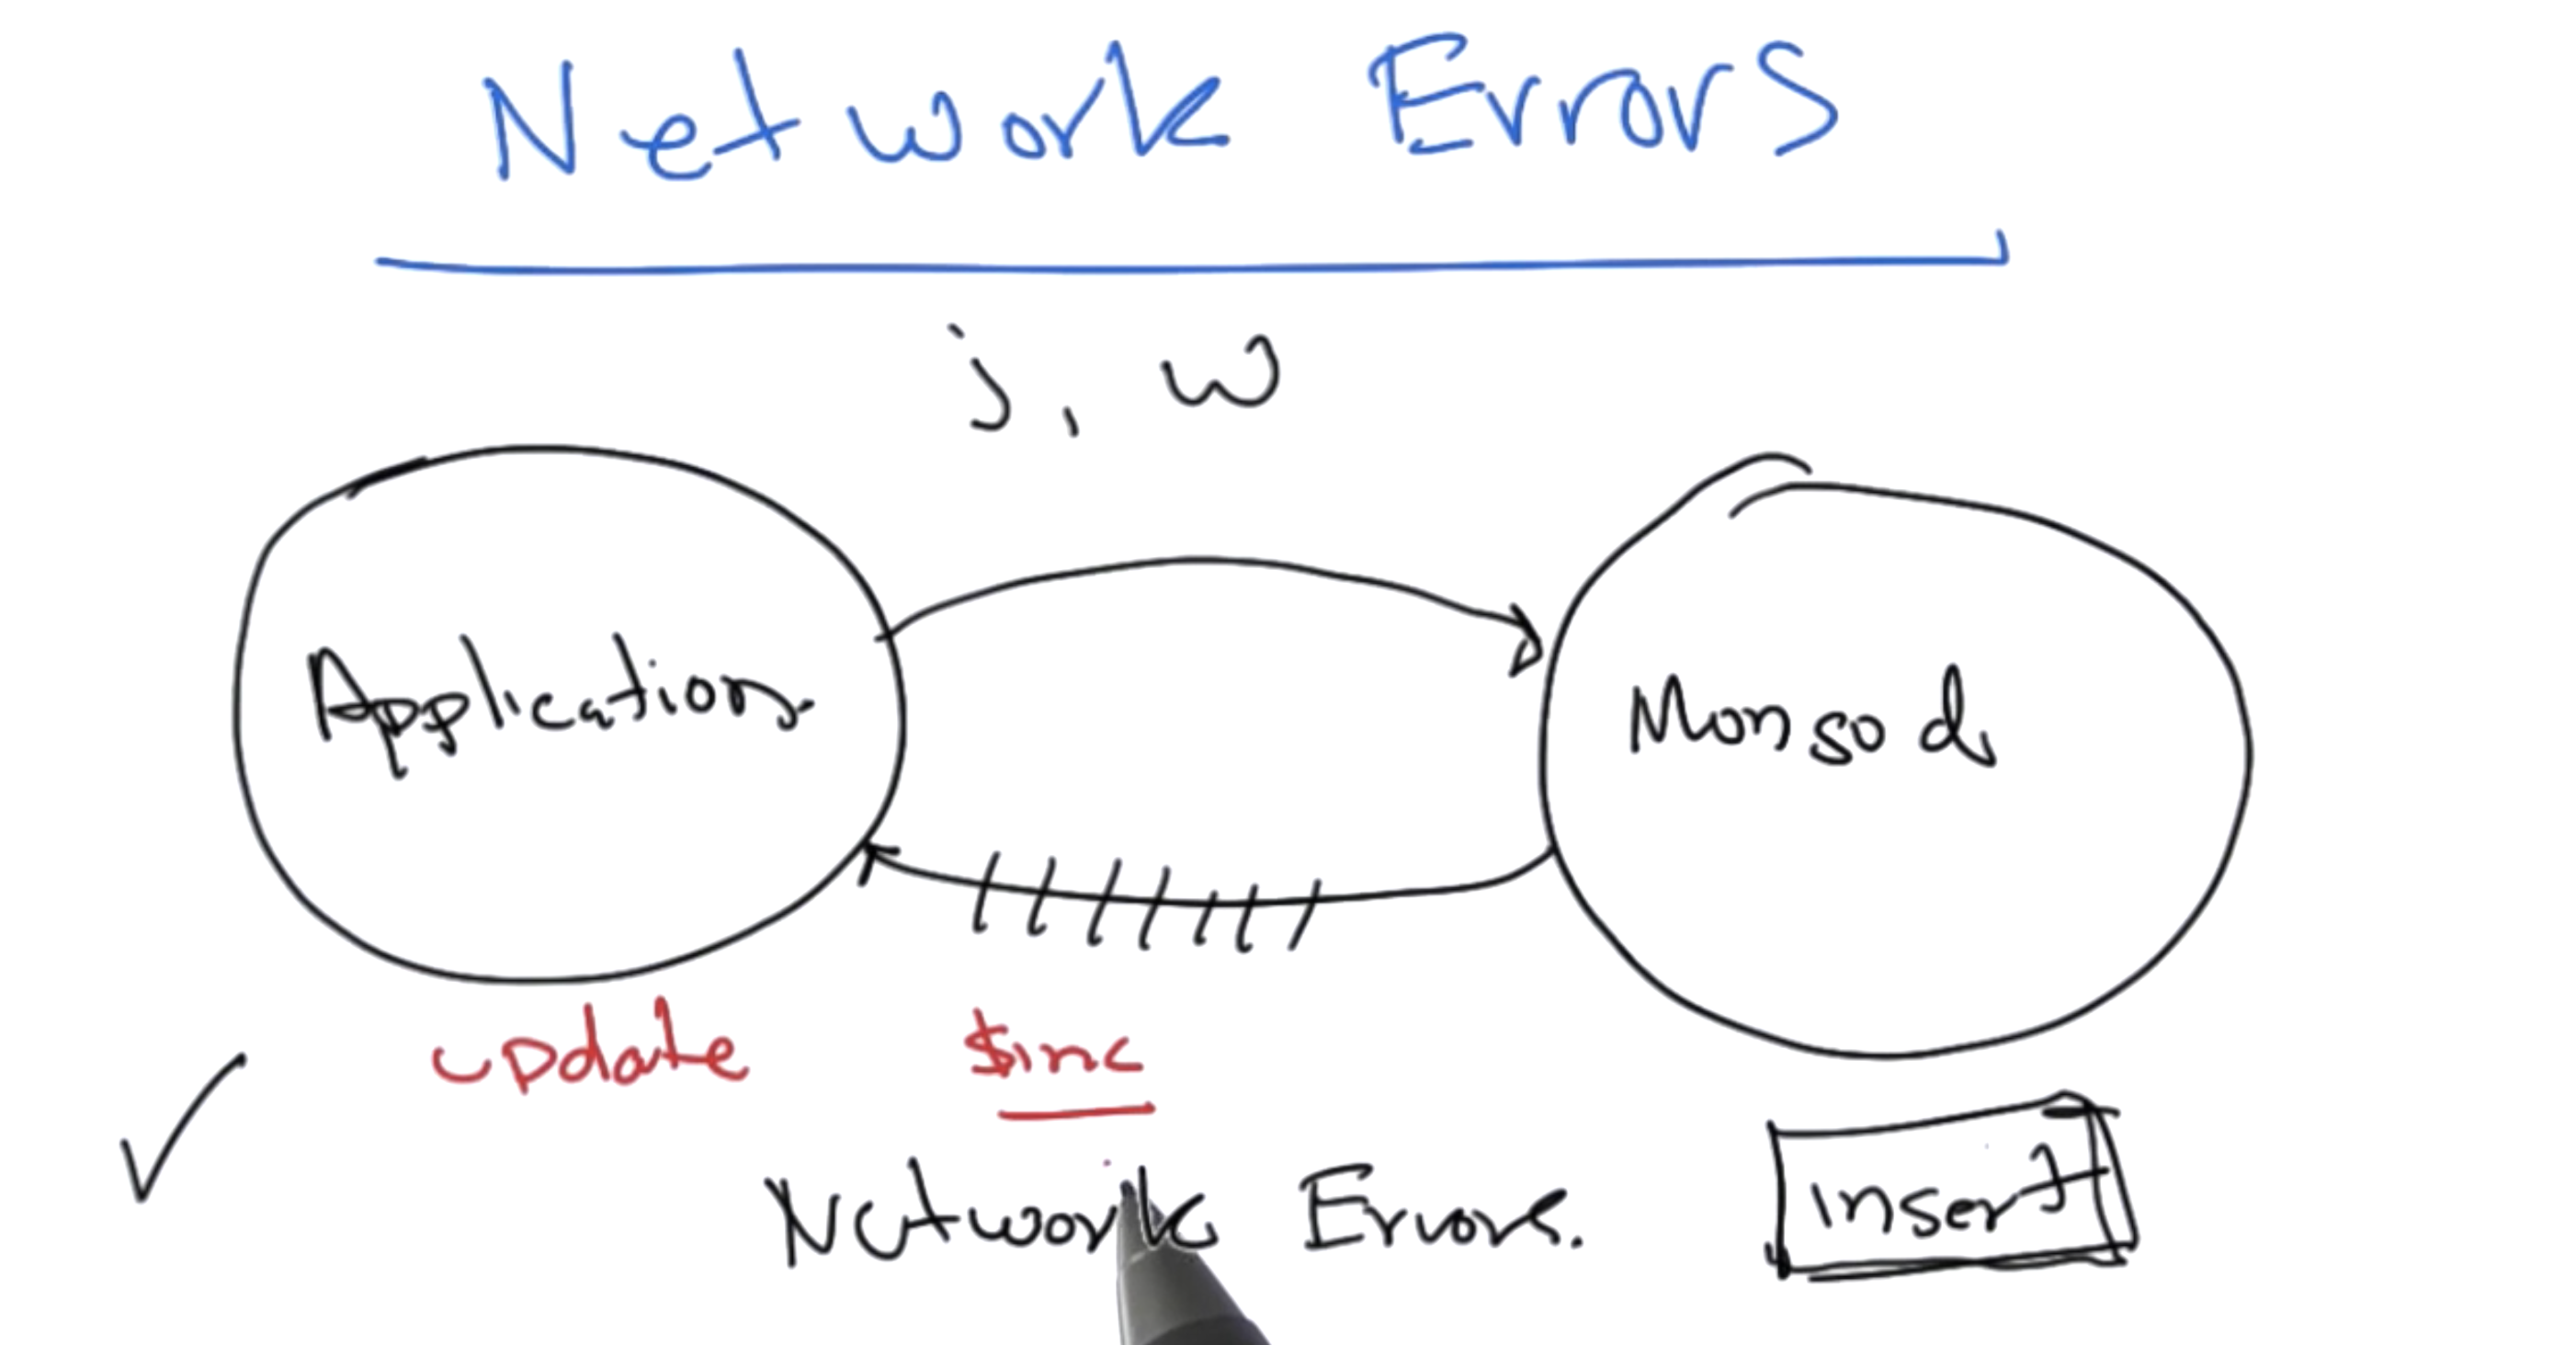 Network Errors
j, w
Application
Mongod
update $inc
Network Errors.
insert